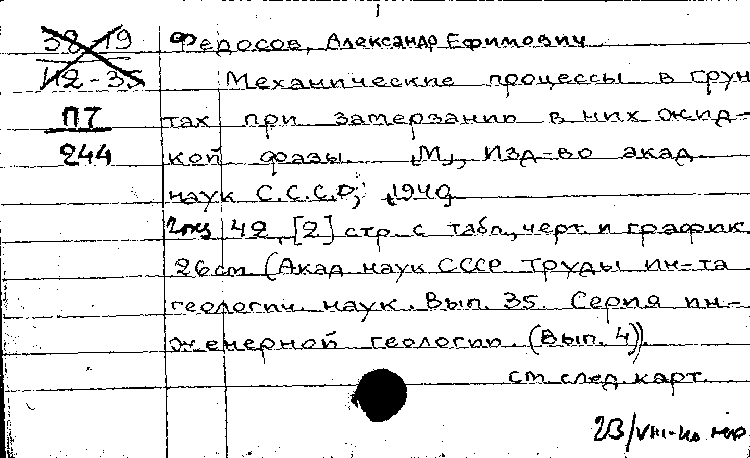 38-19 Федосов, Александр Ефимович
42-35 Механические процессы в грун
ПТ тах при замерзании в них жид-
244 кой фазы. М., Изд-во акад.
наук С.С.С.Р., 1940.
2 экз 42, [2] стр. с табл., черт. и график.
26 см (Акад. наук СССР. Труды ин-та
геологич. наук. Вып. 35. Серия ин-
женерной геологии. (Вып. 4)).
см. след. карт.